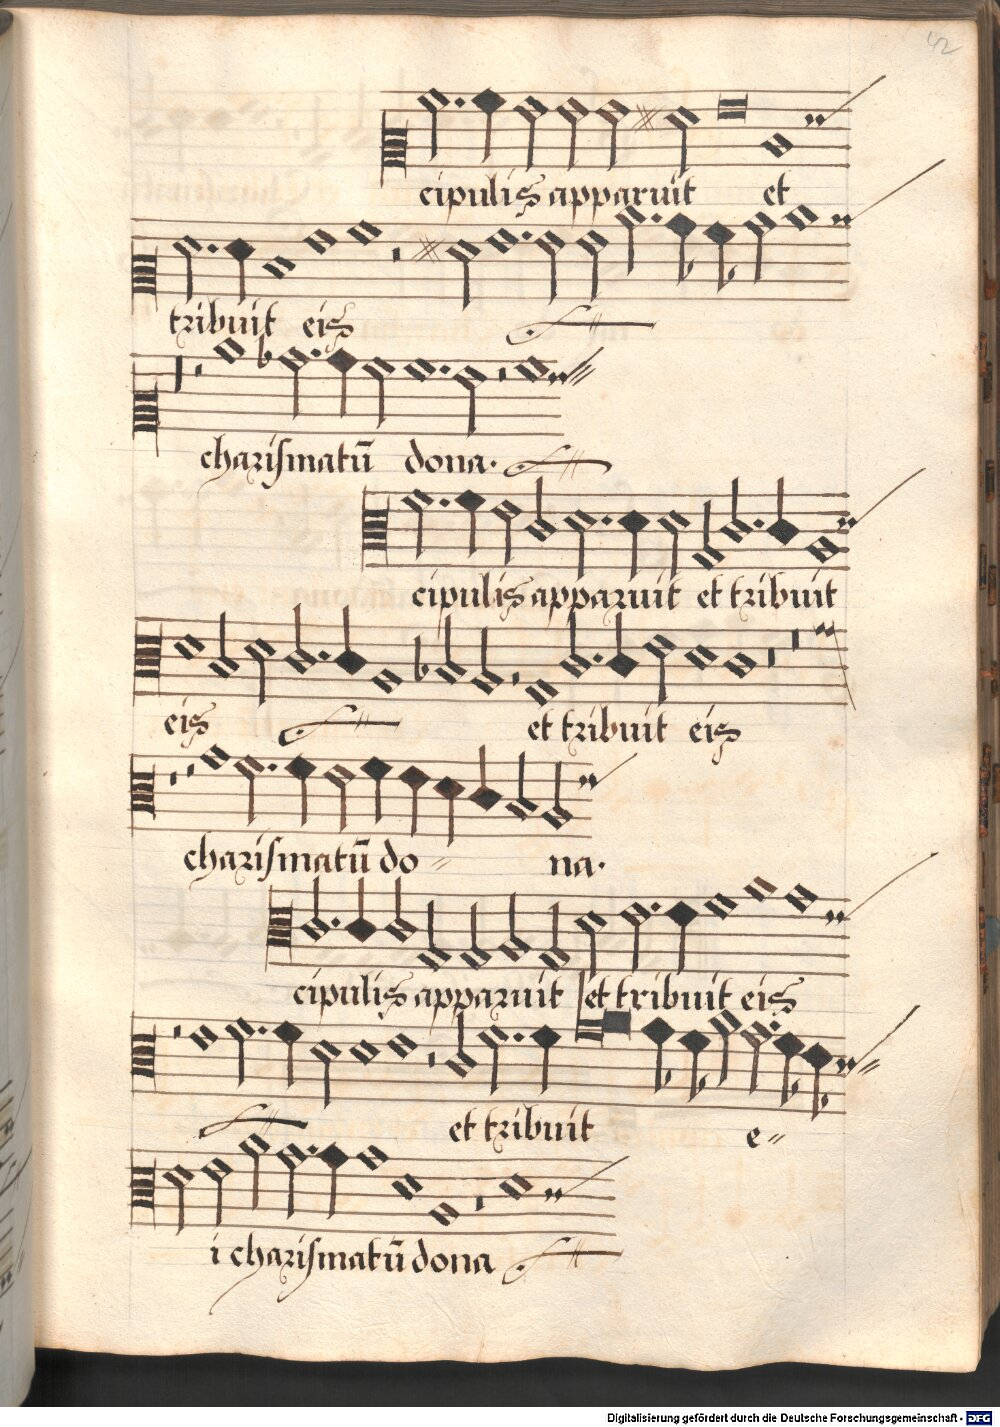 42
cipulis apparuit et
tribuit eis
charismatū dona.
cipulis apparuit et tribuit
eis et tribuit eis
charismatū do= na.
cipulis apparuit et tribuit eis
et tribuit e=
i charismatū dona
Digitalisierung gefördert durch die Deutsche Forschungsgemeinschaft - DFG